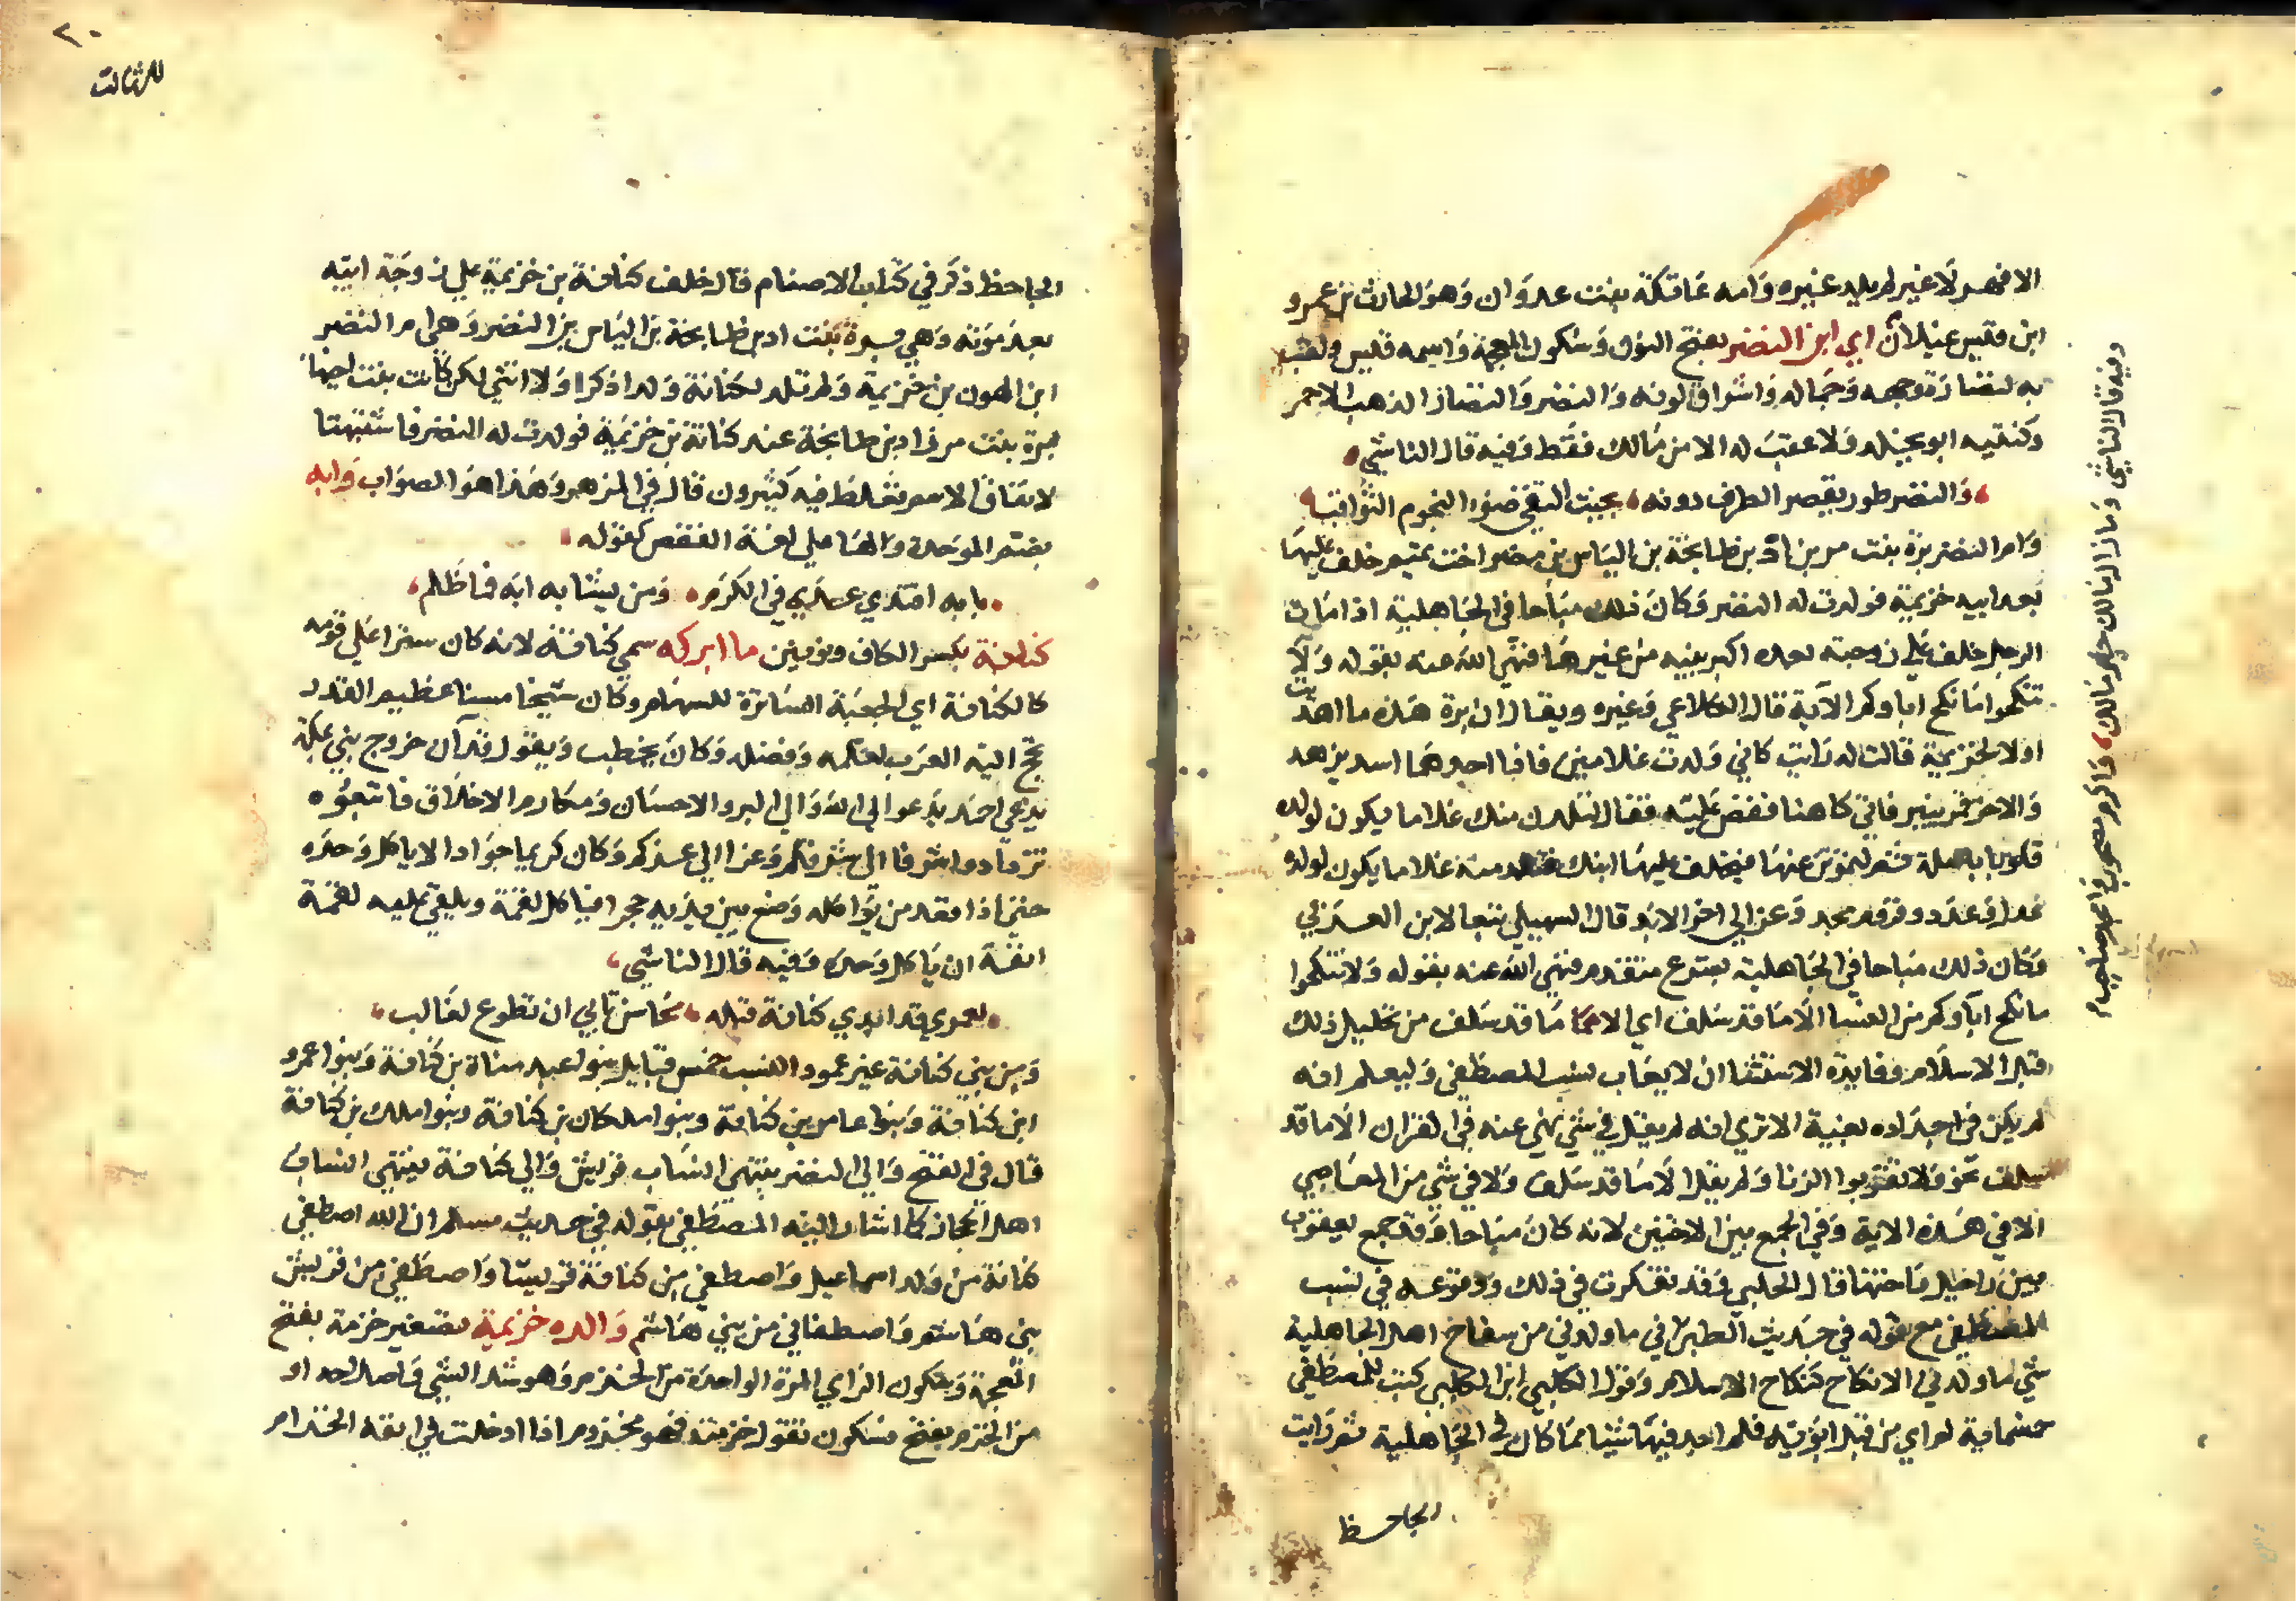 الا فهر لا غير لم يلد غيره وامه عاتكة بنت عدوان وهو الحارث بن عمرو
ابن قيس عيلان اي ابن النضر بفتح النون وسكون المعجمة واسمه قيس ولقب
به لنضارة وجهه وجماله واشراق لونه والنضر والنضار الذهب الاحمر
وكنتيه ابو يخلد ولا عقب له الا من مالك فقط وفيه قال الناشي
والنضر طور يقصر الطرف دونه بحيث التقى ضوء النجوم الثواقب
وام النضر برة بنت مر بن اد بن طابخة بن الياس بن مضر اخت تميم خلف عليها
بعد ابيه خزيمة فولدت له النضر وكان ذلك مباحا في الجاهلية اذا مات
الرجل خلف على زوجته بعده اكبر بنيه من غيرها فنهى الله عنه بقوله ولا
تنكحوا ما نكح اباوكم الآية قال الكلاعي وغيره ويقال ان برة هذه ما اهديت
اولا لخزيمة قالت له رايت كاني ولدت غلامين فاذا احدهما اسد يزهد
والاخر قمر ينير فاتى كاهنا فقص عليه فقال لتلدن منك غلاما يكون لولده
قلوبا باهلة ثم ليموتن عنها فيخلف عليها ابنك فتلد منه غلاما يكون لولده
عدل وعدد وقروم مجد وعز الى اخر الابد قال السهيلي تبعا لابن العربي
وكان ذلك مباحا في الجاهلية بشرع متقدم فنهى الله عنه بقوله ولا تنكحوا
ما نكح آباوكم من النسا الا ما قد سلف اي الا ما قد سلف من تحليل ذلك
قبل الاسلام وفايدة الاستثنا ان لا يعاب نسب المصطفى وليعلم انه
لم يكن في اجداده لغية الا ترى انه لم يقل في شي نهى عنه في القران الا ما قد
سلف نحو ولا تقربوا الزنا ولم يقل الا ما قد سلف ولا في شي من المعاصي
الا في هذه الاية وفي الجمع بين الاختين لانه كان مباحا وقد جمع يعقوب
بين راحيل واختها قال الحلبي وقد تفكرت في ذلك ووقوعه في نسب
المصطفى مع قوله في حديث الطبراني ما ولدني من سفاح اهل الجاهلية
شي ما ولدني الا نكاح كنكاح الاسلام وقول الكلبي ابن الكلبي كتبت للمصطفى
خمسماية ام اي من قبل ابويه فلم اجد فيها شيئا مما كان في الجاهلية ثم رايت
الجاحظ
وفيه قال الناشي وما زال مالك خير مالك واكرم مصحوب واكرم صاحب
٢٠
للثالث
الجاحظ ذكر في كتاب الاصنام قال خلف كنانة بن خزيمة على زوجة ابيه
بعد موته وهي برة بنت اد بن طابخة بن الياس بن النضر وهي ام النضر
ابن الهون بن خزيمة ولم تلد لكنانة ولدا ذكرا ولا انثى لكن كانت بنت اخيها
برة بنت مر بن اد بن طابخة عند كنانة بن خزيمة فولدت له النضر فاشتبهتا
لاتفاق الاسم فغلط فيه كثيرون قال في المزهر وهذا هو الصواب وابه
بضم الموحدة والها على لغة النقص كقوله
بابه اقتدى عدي في الكرم ومن يشابه ابه فما ظلم
كنانة بكسر الكاف ونونين ما ابركه سمي كنانة لانه كان سترا على قومه
كالكنانة اي الجعبة الساترة للسهام وكان شيخا مسنا عظيم القدر
تحج اليه العرب لعلمه وفضله وكان يخطب ويقول قد آن خروج نبي بمكة
يدعى احمد يدعو الى الله والى البر والاحسان ومكارم الاخلاق فاتبعوه
تزدادوا شرفا الى شرفكم وعزا الى عزكم وكان كريما جوادا لا ياكل وحده
حتى اذا فقد من يواكله وضع بين يديه حجرا فياكل لقمة ويلقي عليه لقمة
انفة ان ياكل وحده وفيه قال الناشي
لعمري قد ابدى كنانة قبله محاسن تابى ان تطوع لغالب
ومن بني كنانة غير عمود النسب خمس قبايل بنو عبد مناة بن كنانة وبنو عمرو
ابن كنانة وبنوا عامر بن كنانة وبنوا ملكان بن كنانة وبنوا ملك بن كنانة
قال في الفتح والى النضر ينتهي انساب قريش والى كنانة ينتهي انساب
اهل الحجاز كما اشار اليه المصطفى بقوله في حديث مسلم ان الله اصطفى
كنانة من ولد اسماعيل واصطفى من كنانة قريشا واصطفى من قريش
بني هاشم واصطفاني من بني هاشم والده خزيمة تصغير خزمة بفتح
المعجمة وسكون الزاي المرة الواحدة من الخزم وهو شد الشي واصلاحه او
من الخزم بفتح فسكون تقول خزمته فهو مخزوم اذا ادخلت في انفه الخزام